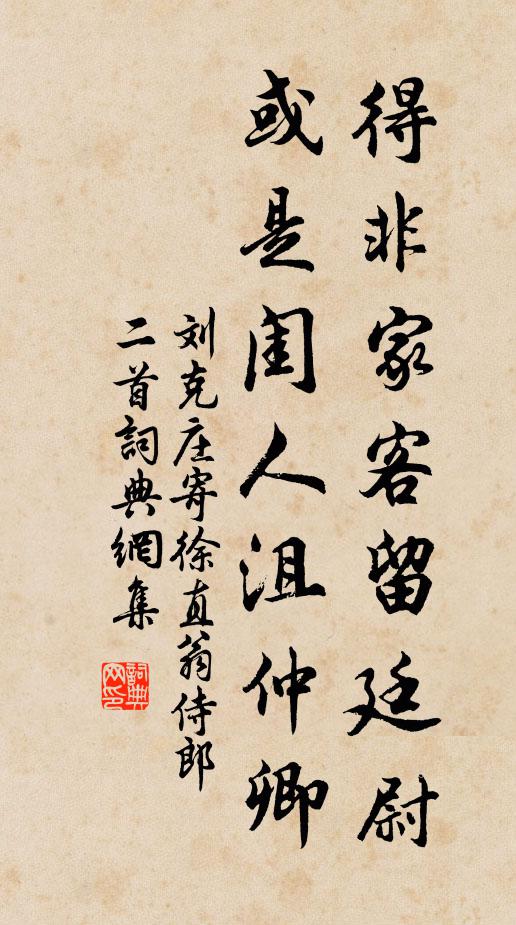 得非家客留廷尉
或是闺人沮仲卿
刘克庄寄徐直翁侍郎
二首詞典網集
詞典
网印